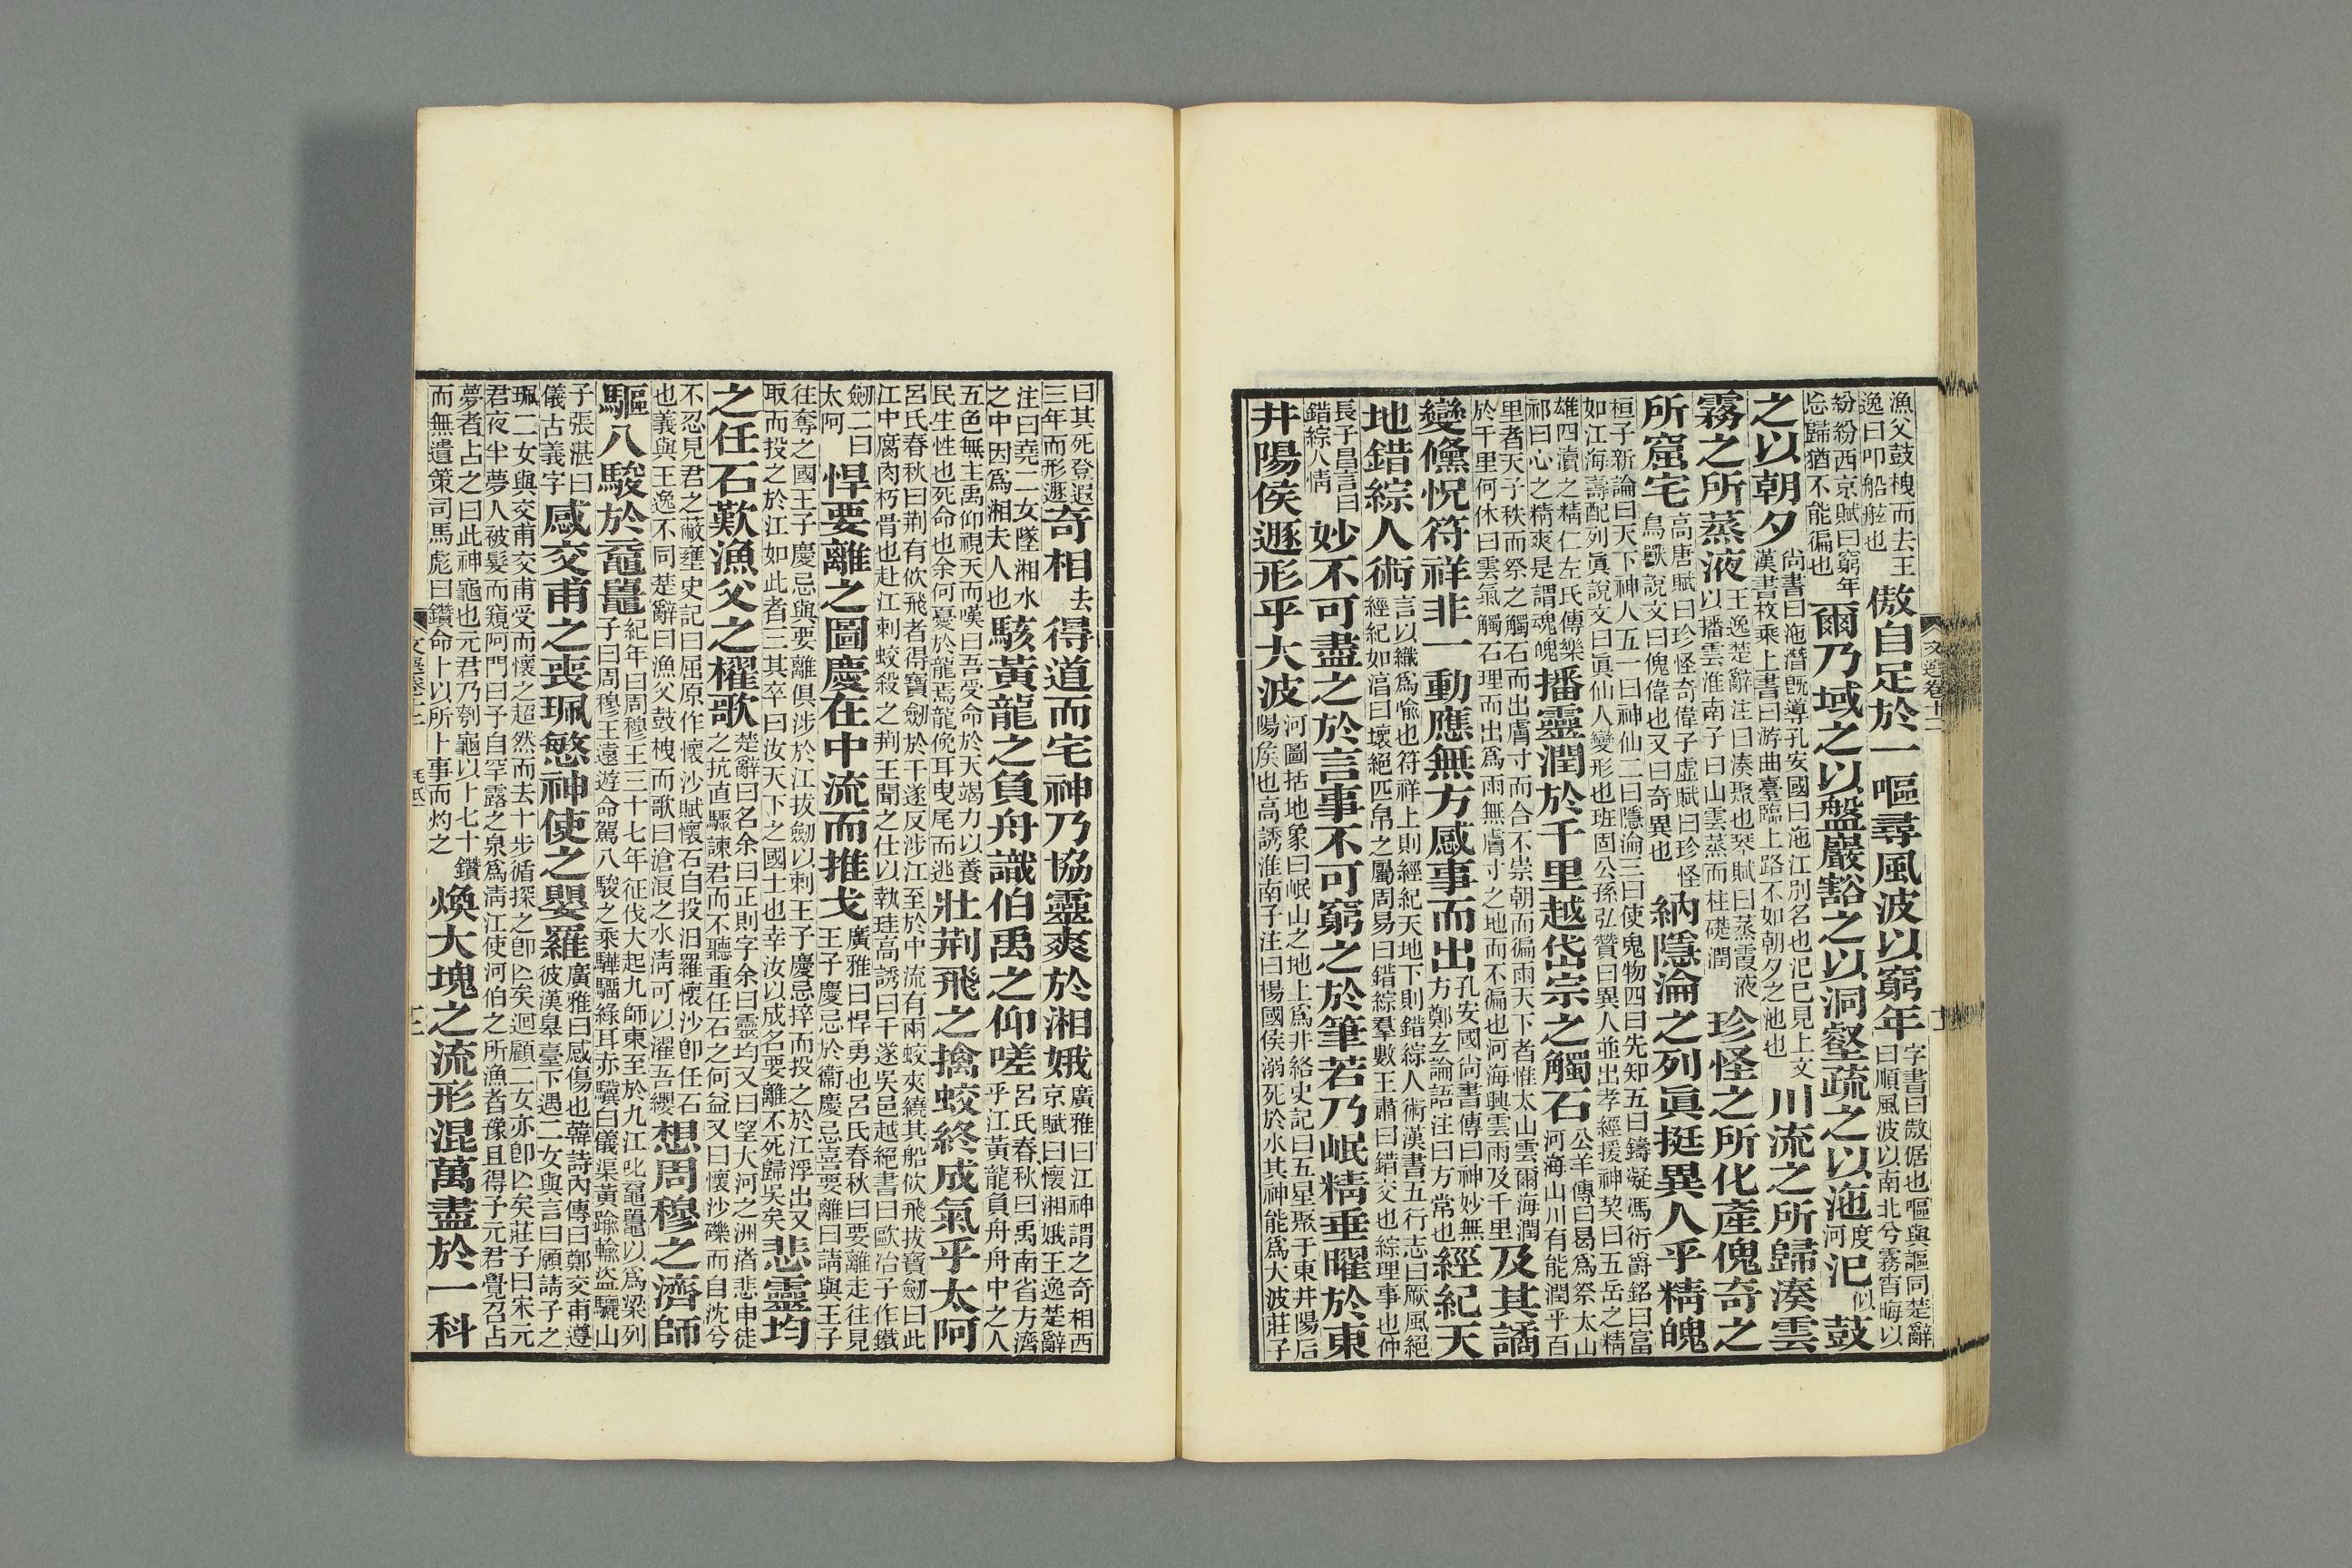 漁父鼓枻而去王
逸曰叩船舷也
傲自足於一嘔尋風波以窮年
字書曰傲倨也嘔與謳同楚辭
曰順風波以南北兮霧宵晦以
紛紛西京賦曰窮年
忘歸猶不能徧也
爾乃域之以盤巖豁之以洞壑疏之以沲度河汜似鼓
之以朝夕
尚書曰沲潛旣導孔安國曰沲江別名也汜已見上文
漢書枚乘上書曰游曲臺臨上路不如朝夕之池也
川流之所歸湊雲
霧之所蒸液
王逸楚辭注曰湊聚也琴賦曰蒸霞液
以播雲淮南子曰山雲蒸而柱礎潤
珍怪之所化產傀奇之
所窟宅
高唐賦曰珍怪奇偉子虛賦曰珍怪
鳥獸說文曰傀偉也又曰奇異也
納隱淪之列眞挺異人乎精魄
桓子新論曰天下神人五一曰神仙二曰隱淪三曰使鬼物四曰先知五曰鑄凝馮衍爵銘曰富
如江海壽配列眞說文曰眞仙人變形也班固公孫弘贊曰異人並出孝經援神契曰五岳之精
雄四瀆之精仁左氏傳樂
祁曰心之精爽是謂魂魄
播靈潤於千里越岱宗之觸石
公羊傳曰曷爲祭太山
河海山川有能潤乎百
里者天子秩而祭之觸石而出膚寸而合不崇朝而徧雨天下者惟太山雲爾海潤
於千里何休曰雲氣觸石理而出爲雨無膚寸之地而不徧也河海興雲雨及千里
及其譎
變儵怳符祥非一動應無方感事而出
孔安國尚書傳曰神妙無
方鄭玄論語注曰方常也
經紀天
地錯綜人術
言以織爲喻也符祥上則經紀天地下則錯綜人術漢書五行志曰厥風絕
經紀如湻曰壞絕匹帛之屬周易曰錯綜羣數王肅曰錯交也綜理事也仲
長子昌言曰
錯綜人情
妙不可盡之於言事不可窮之於筆若乃岷精垂曜於東
井陽侯遯形乎大波
河圖括地象曰岷山之地上爲井絡史記曰五星聚于東井陽后
陽侯也高誘淮南子注曰楊國侯溺死於水其神能爲大波莊子
文選卷十二
曰其死登遐
三年而形遯
奇相去得道而宅神乃協靈爽於湘娥
廣雅曰江神謂之奇相西
京賦曰懷湘娥王逸楚辭
注曰堯二女墜湘水
之中因爲湘夫人也
駭黃龍之負舟識伯禹之仰嗟
呂氏春秋曰禹南省方濟
乎江黃龍負舟舟中之人
五色無主禹仰視天而嘆曰吾受命於天竭力以養
民生性也死命也余何憂於龍焉龍俛耳曳尾而逃
壯荆飛之擒蛟終成氣乎太阿
呂氏春秋曰荆有佽飛者得寶劒於干遂反涉江至於中流有兩蛟夾繞其船佽飛拔寶劒曰此
江中腐肉朽骨也赴江刺蛟殺之荆王聞之仕以執珪高誘曰干遂吳邑越絕書曰歐冶子作鐵
劒二曰
太阿
悍要離之圖慶在中流而推戈
廣雅曰悍勇也呂氏春秋曰要離走往見
王子慶忌於衞慶忌喜要離曰請與王子
往奪之國王子慶忌與要離俱涉於江拔劒以刺王子慶忌捽而投之於江浮出又
取而投之於江如此者三其卒曰汝天下之國士也幸汝以成名要離不死歸吳矣
悲靈均
之任石歎漁父之櫂歌
楚辭曰名余曰正則字余曰靈均又曰望大河之洲渚悲申徒
之抗直驟諫君而不聽重任石之何益又曰懷沙礫而自沈兮
不忍見君之蔽壅史記曰屈原作懷沙賦懷石自投汨羅懷沙卽任石
也義與王逸不同楚辭曰漁父鼓枻而歌曰滄浪之水淸可以濯吾纓
想周穆之濟師
驅八駿於黿鼉
紀年曰周穆王三十七年征伐大起九師東至於九江叱黿鼉以爲梁列
子曰周穆王遠遊命駕八駿之乘驊騮綠耳赤驥白儀渠黃踰輪盜驪山
子張湛曰
儀古義字
感交甫之喪珮慜神使之嬰羅
廣雅曰感傷也韓詩內傳曰鄭交甫遵
彼漢皋臺下遇二女與言曰願請子之
珮二女與交甫交甫受而懷之超然而去十步循探之卽亡矣迴顧二女亦卽亡矣莊子曰宋元
君夜半夢人被髮而窺阿門曰予自罕露之泉爲淸江使河伯之所漁者豫且得予元君覺召占
夢者占之曰此神龜也元君乃刳龜以卜七十
而無遺策司馬彪曰鑽命卜以所卜事而灼之
鑽
煥大塊之流形混萬盡於一科